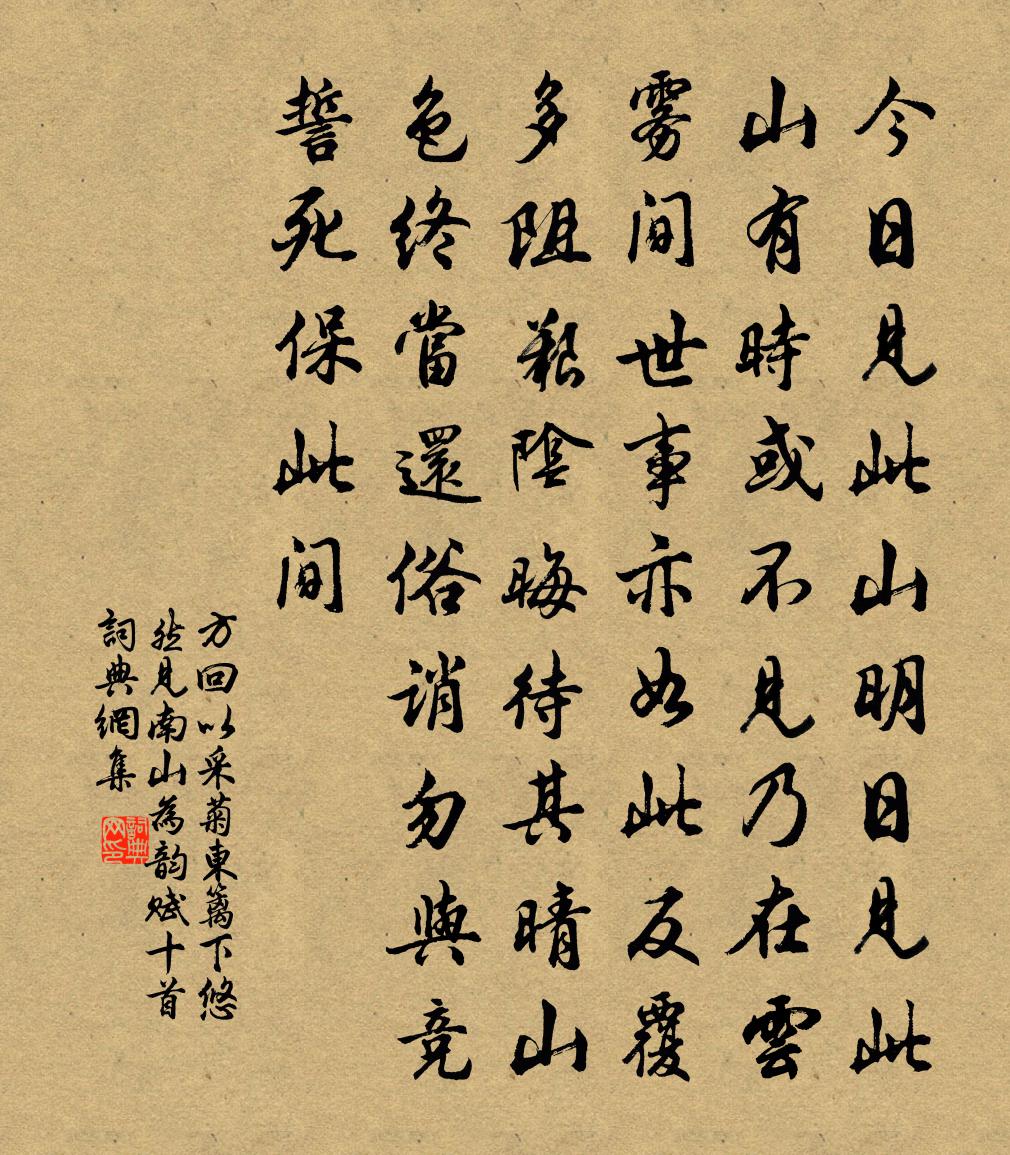 今日見此山明日見此
山有時或不見乃在雲
雾間世事亦如此反覆
多阻艱陰晦待其晴山
色終當還俗誚勿與競
誓死保此間
方回以采菊東籬下悠
然見南山為韵賦十首
詞典網集
詞典网印